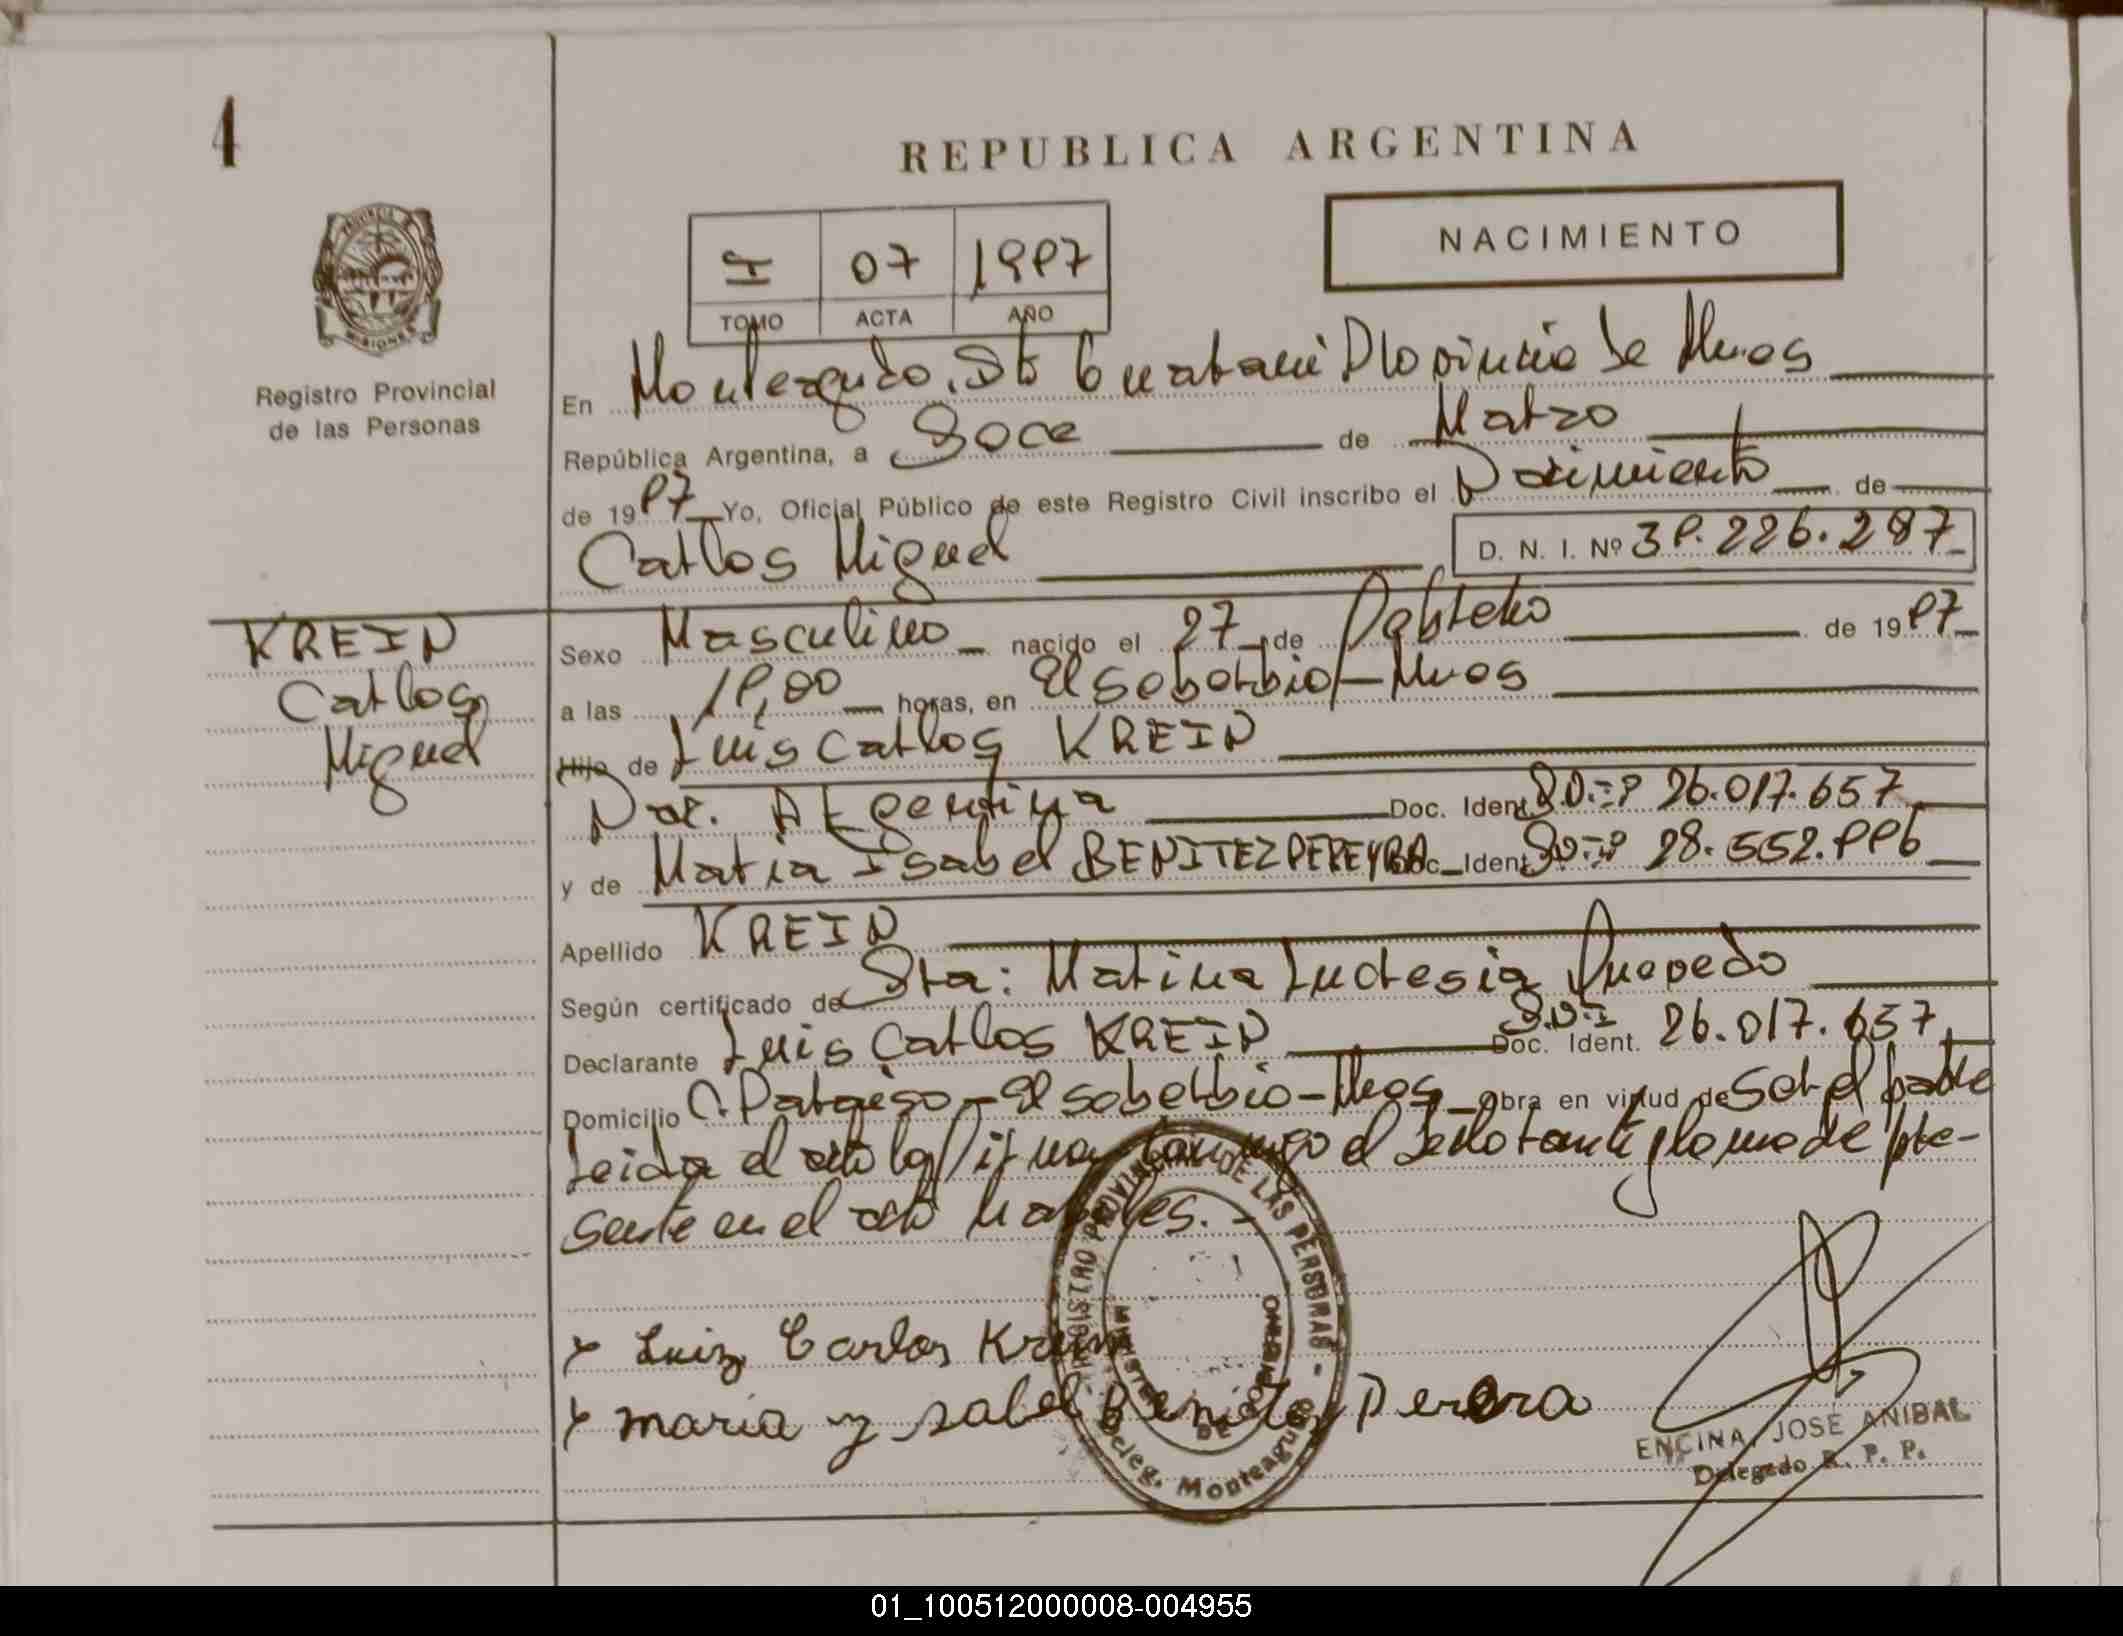 4
REPUBLICA ARGENTINA
PROVINCIA
MISIONES
Registro Provincial
de las Personas
I 07 1997
TOMO ACTA AÑO
NACIMIENTO
En Monteagudo. Dto Guarani Provincia de Mnes
República Argentina, a Doce de Marzo
de 1997 Yo, Oficial Público de este Registro Civil inscribo el Nacimiento de
Carlos Miguel D. N. I. Nº 39.226.287
KREIN
Carlos
Miguel
Sexo Masculino nacido el 27 de Febrero de 1997
a las 19,00 horas, en El Soberbio - Mnes
Hijo de Luis Carlos KREIN
Nac. Argentina Doc. Ident. 26.017.657
y de Maria Isabel BENITEZ PEREYRA Doc. Ident. 28.552.996
Apellido KREIN
Según certificado de Sra: Marina Lucresia Quevedo
Declarante Luis Carlos KREIN D.N.I Doc. Ident. 26.017.657
Domicilio C. Paraiso - El soberbio - Mnes Obra en virtud de Ser el padre
Leida el acta la firman conmigo el declarante y la madre pre-
sente en el acto
REGISTRO PROVINCIAL DE LAS PERSONAS
MINISTERIO DE GOBIERNO
Deleg. Monteagudo
x Luiz Carlos Krein
x maria ysabel Benitez Perera
ENCINA, JOSE ANIBAL
Delegado R. P. P.
01_100512000008-004955